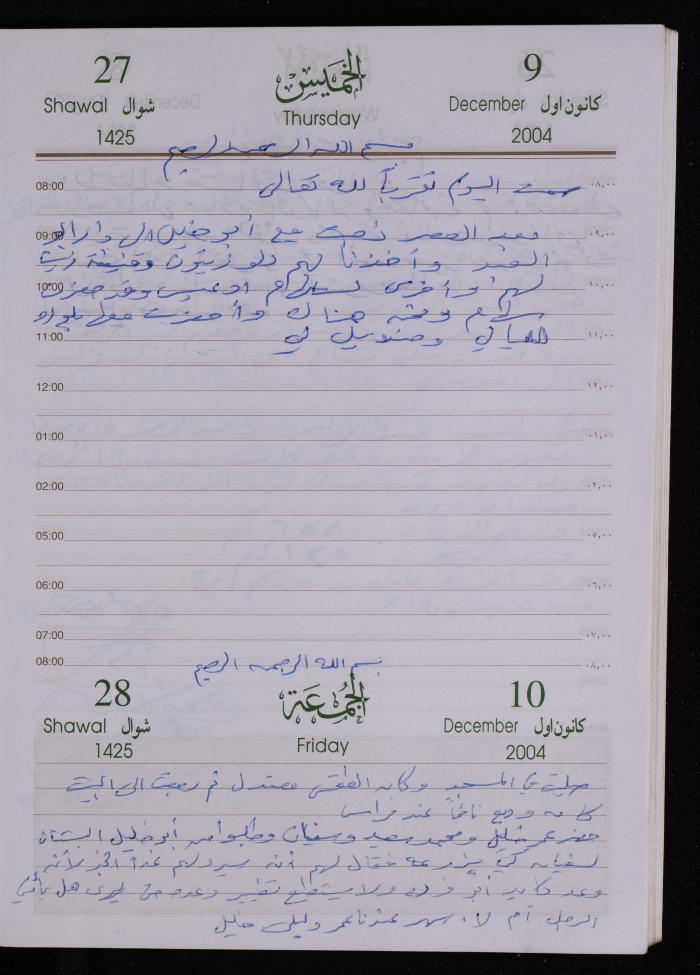 27 الخميس 9
Shawal شوال Thursday December كانون اول
1425 2004
بسم الله الرحمن الرحيم
08:00 اليوم تقرباً لله تعالى ٠٨,٠٠
09:00 بعد العصر ذهبت مع أبو خليل الى دار ابو ٠٩,٠٠
العبد وأخذنا لهم دلو زيتون وقنينة زيت
10:00 لهم وأخرى لسهام ١٠,٠٠
سهام هناك وأحضرت معها
11:00 لليالي لي ١١,٠٠
12:00 ١٢,٠٠
01:00 ٠١,٠٠
02:00 ٠٢,٠٠
05:00 ٠٥,٠٠
06:00 ٠٦,٠٠
07:00 ٠٧,٠٠
08:00 ٠٨,٠٠
بسم الله الرحمن الرحيم
28 الجمعة 10
Shawal شوال Friday December كانون اول
1425 2004
صليت في المسجد وكان الطقس معتدل ثم رجعت الى البيت
كان وديع نائماً عند فراس
حضر عمر خليل ومحمد سعيد وسفيان وطلبوا من أبو خليل البستان
لسفيان كي يزرعه فقال لهم أنه سيرد لهم غداً الخبر لأنه
وعد أبو ولا يستطيع تغيير وعده حتى يرى هل يأتي
الرجل أم لا. سهر عندنا عمر وليلى خليل